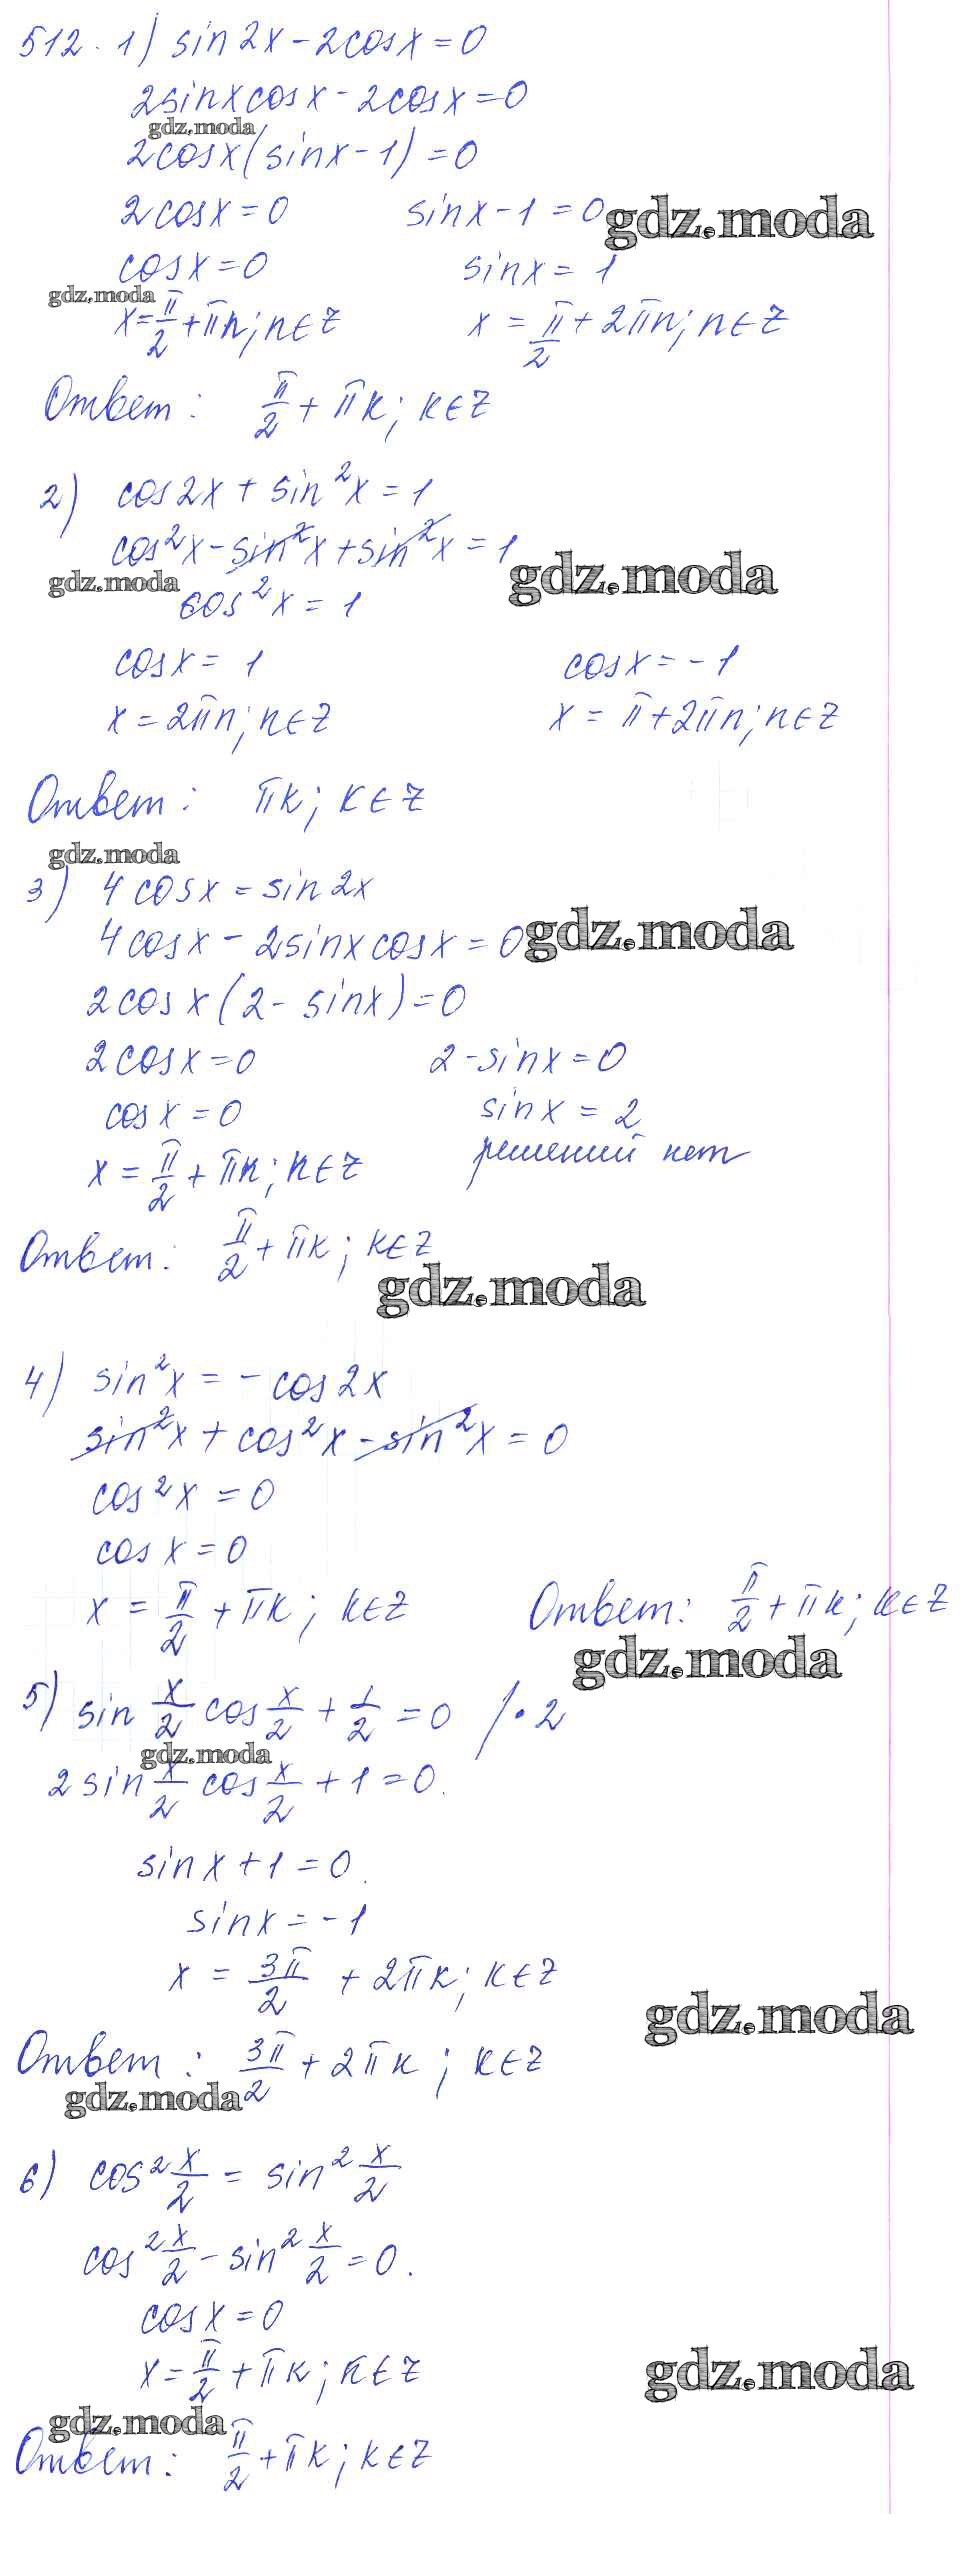 512. 1) sin2x - 2cosx = 0
2sinxcosx - 2cosx = 0
gdz.moda
2cosx(sinx - 1) = 0
2cosx = 0 sinx - 1 = 0
gdz.moda
cosx = 0 sinx = 1
gdz.moda
x = π/2 + πn; n∈Z x = π/2 + 2πn; n∈Z
Ответ: π/2 + πk; k∈Z
2) cos2x + sin²x = 1
cos²x - sin²x + sin²x = 1
gdz.moda
gdz.moda
cos²x = 1
cosx = 1 cosx = -1
x = 2πn; n∈Z x = π + 2πn; n∈Z
Ответ: πk; k∈Z
gdz.moda
3) 4cosx = sin2x
4cosx - 2sinxcosx = 0
gdz.moda
2cosx(2 - sinx) = 0
2cosx = 0 2 - sinx = 0
cosx = 0 sinx = 2
x = π/2 + πk; k∈Z решений нет
Ответ: π/2 + πk; k∈Z
gdz.moda
4) sin²x = - cos2x
sin²x + cos²x - sin²x = 0
cos²x = 0
cosx = 0
x = π/2 + πk; k∈Z Ответ: π/2 + πk; k∈Z
gdz.moda
5) sin x/2 cos x/2 + 1/2 = 0 /·2
gdz.moda
2sin x/2 cos x/2 + 1 = 0.
sinx + 1 = 0.
sinx = -1
x = 3π/2 + 2πk; k∈Z
gdz.moda
Ответ: 3π/2 + 2πk; k∈Z
gdz.moda
6) cos² x/2 = sin² x/2
cos² x/2 - sin² x/2 = 0.
cosx = 0
x = π/2 + πk; k∈Z
gdz.moda
gdz.moda
Ответ: π/2 + πk; k∈Z